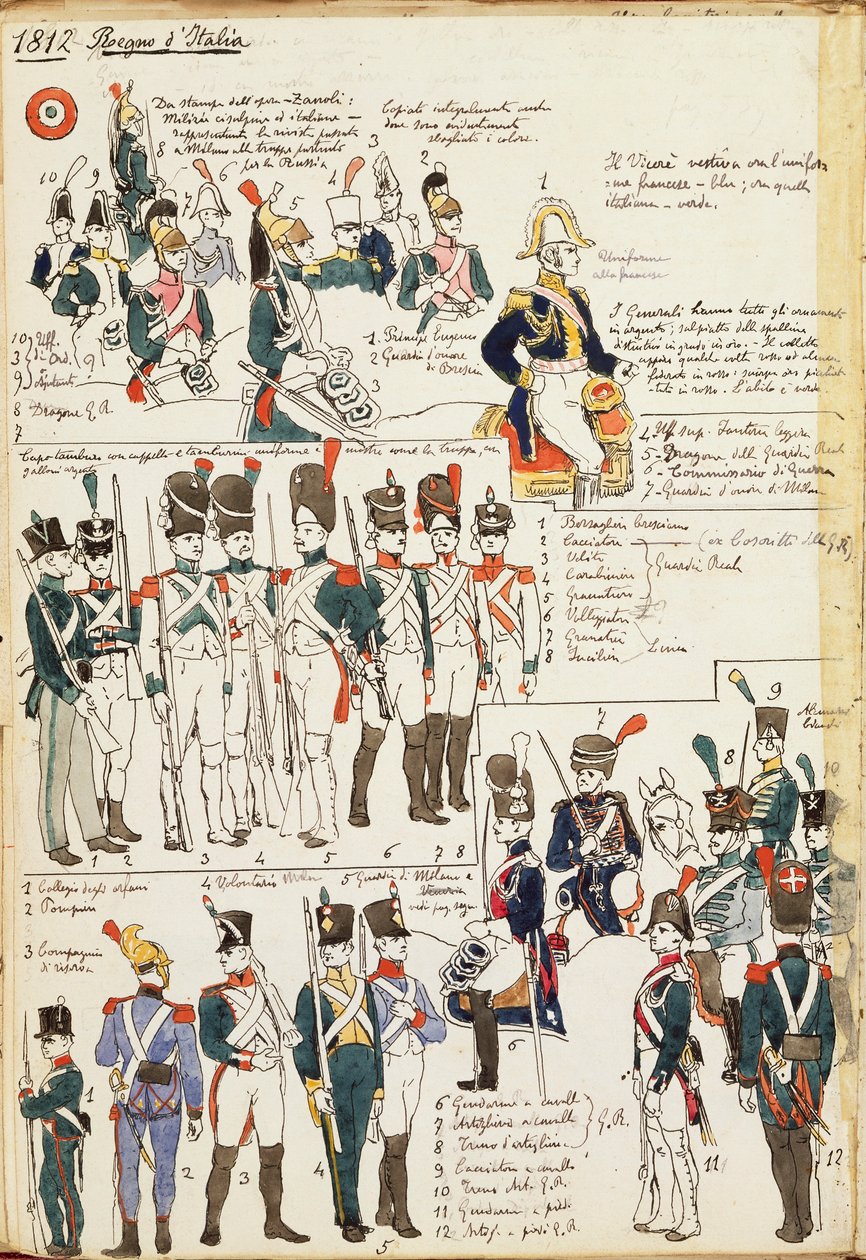 1812 Regno d'Italia
Da stampa dell'opera - Zanoli:
Milizia cisalpina ed italiana -
rappresentante la rivista passata
a Milano alle truppe partenti
per la Russia
Copiato integralmente anche
dove sono evidentemente
sbagliato i colori.
Il Vicerè vestiva ora l'unifor-
me francese - blu; ora quella
italiana - verde.
Uniforme
alla francese
I Generali hanno tutti gli ornamenti
in argento; sul piatto delle spalline
distintivi in grado in oro. - Il colletto
appare qualche volta rosso ed
foderato in rosso:
in rosso. L'abito è verde
10 9 8 7 6 5 4 3 2 1
10 Uff.
3 di Ord.
9
8 Dragone G. R.
7
1. Principe Eugenio
2 Guardia d'onore
di Brescia
3
4 Uff. sup. Fanteria leggera
5 - Dragone della Guardia Reale
6 - Commissario di Guerra
7 - Guardia d'onore di Milano
Capo tamburo con cappello e tamburini uniforme e mostre come la truppa, con
galloni argento
1 Bersagliere bresciano
2 Cacciatori (ex Coscritti della G. R.)
3 Veliti
4 Carabinieri
5 Granatiere
Guardia Reale
6 Volteggiatori
7 Granatieri
8 Fucilieri
Linea
1 2 3 4 5 6 7 8
1 Collegio degli orfani
2 Pompieri
3 Compagnia
di riserva
4 Volontario Milan
5 Guardia di Milano e
Venezia
vedi pag. segue.
7 8 9 10
6
6 Gendarme a cavallo
7 Artigliere a cavallo
8 Treno d'artiglieria
G. R.
9 Cacciatore a cavallo
10 Treno Art. G. R.
11 Gendarme a piedi
12 Artigl. a piedi G. R.
1 2 3 4 5 11 12